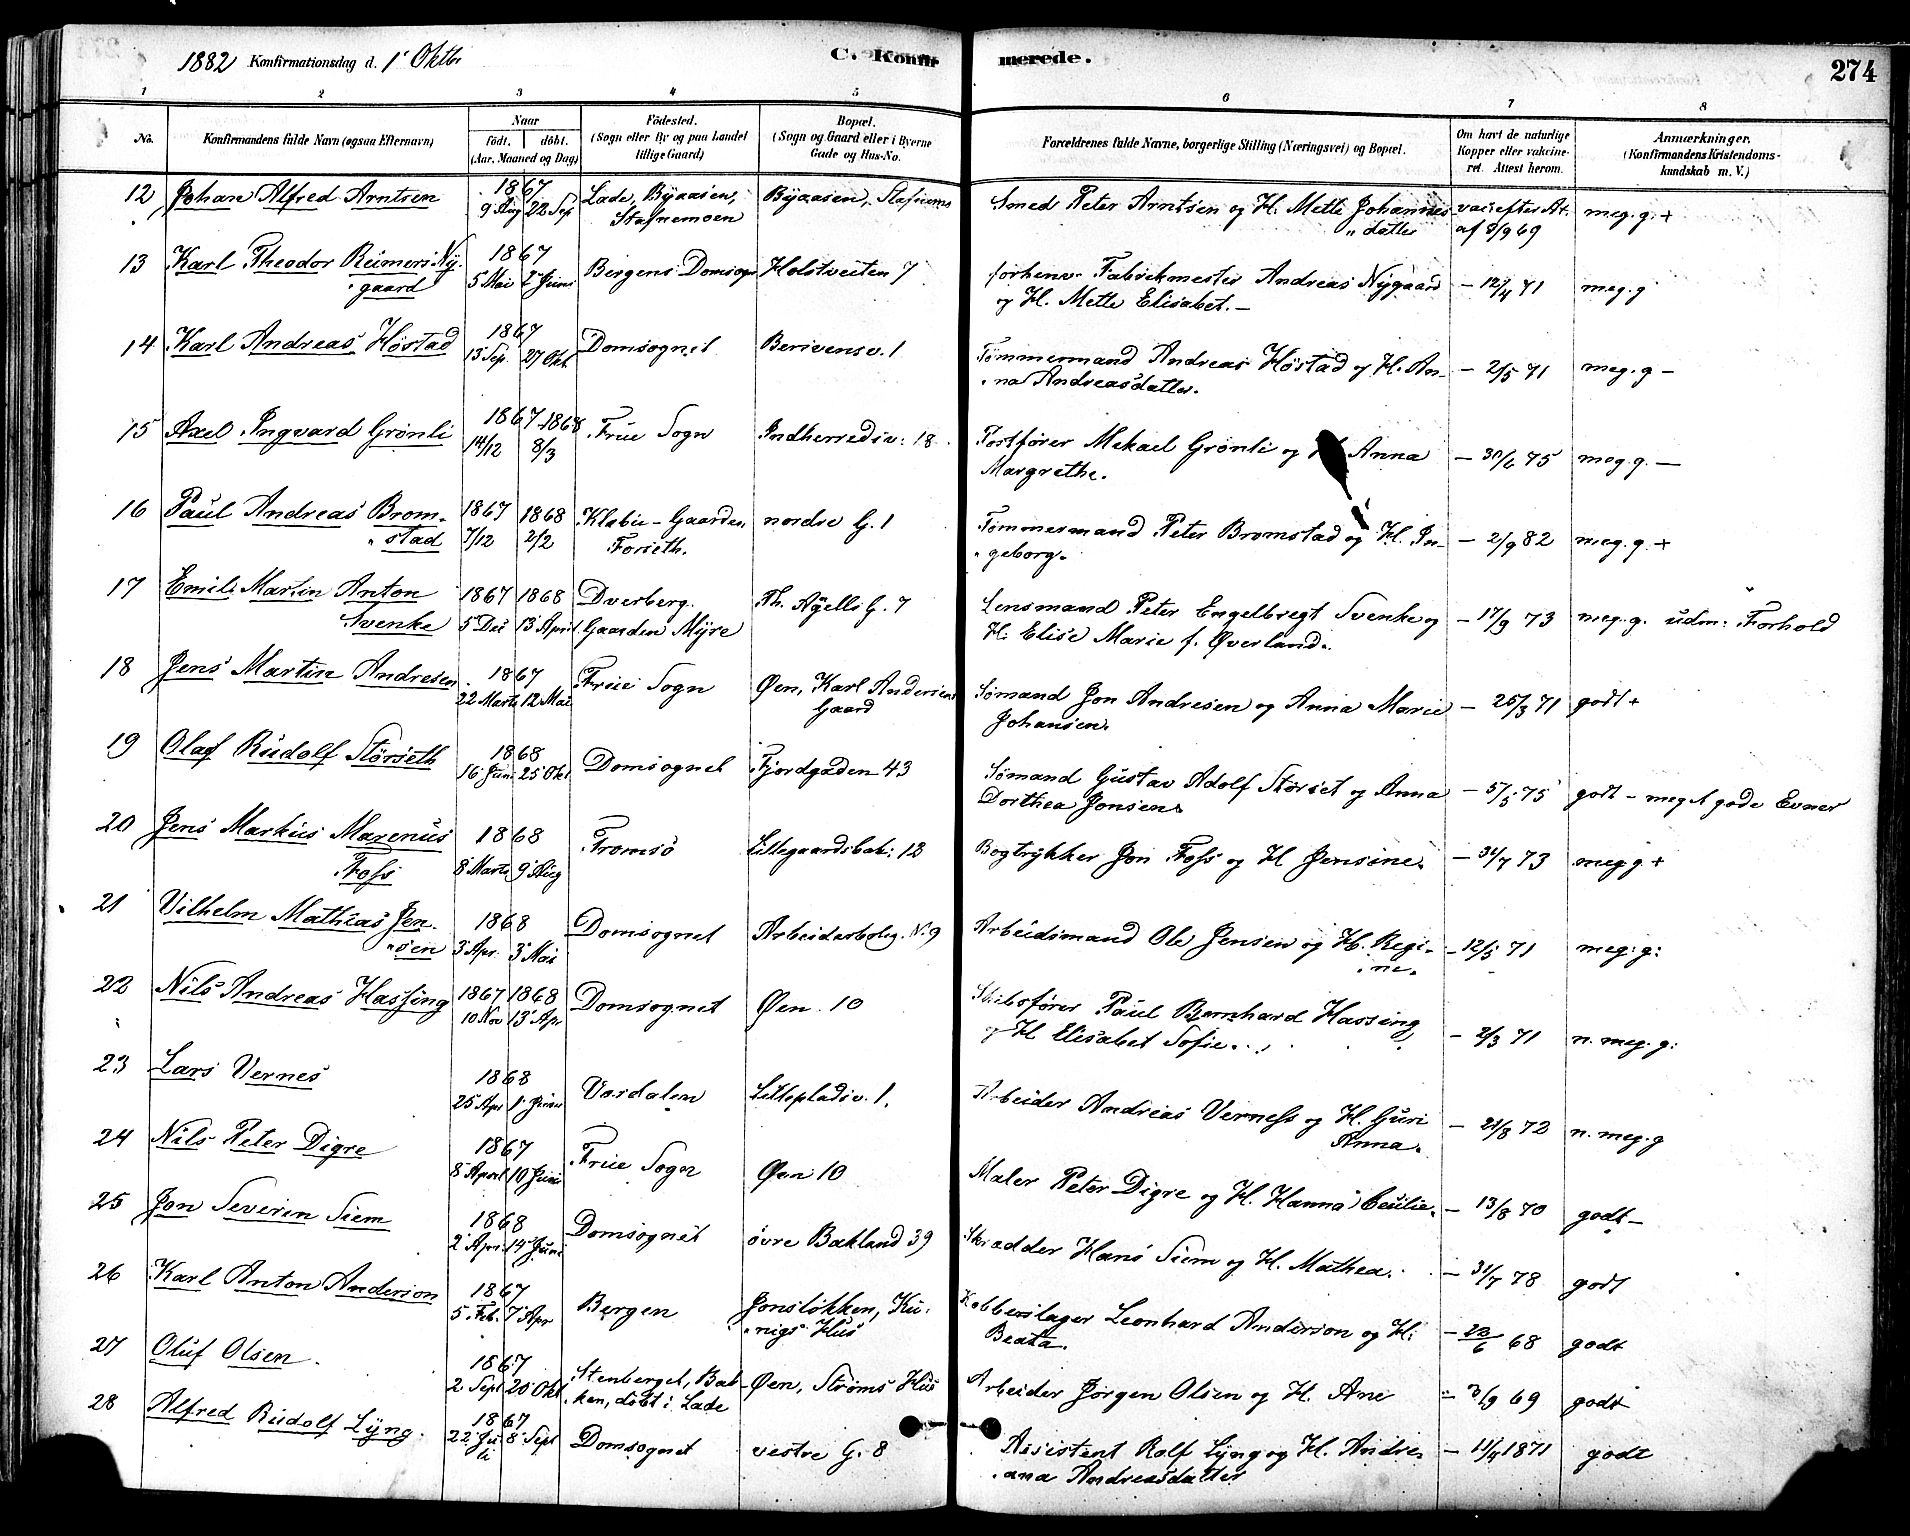 1882 Konfirmationsdag d. 1' Oktbr C. Konfir merede. 274
1 2 3 4 5 6 7 8
No. Konfirmandens fulde Navn (ogsaa Efternavn) Naar født. døbt. (Aar, Maaned og Dag) Fødested. (Sogn eller By og paa Landet tillige Gaard) Bopæl. (Sogn og Gaard eller i Byerne Gade og Hus-No. Forældrenes fulde Navne, borgerlige Stilling (Næringsvei) og Bopæl. Om havt de naturlige Kopper eller vaccineret. Attest herom. Anmærkninger. (Konfirmandens Kristendomskundskab m. V.)
12 Johan Alfred Arntsen 1867 9 Aug 22 Sep Lade, Byaasen, Byaasen, Smed Peter Arntsen og H. Mette Johannes vac. efter At. meg. g. +
Stafnemoen "datter af 8/9 69
13 Karl Theodor Reimers Ny- 1867 5 Mai 2 Juni Bergens Domsogn Holstveiten 7 forhenv. Fabrikmester Andreas Nygaard - 12/4 71 meg. g
gaard og H. Mette Elisabet. -
14 Karl Andreas Høstad 1867 13 Sep. 27 Okt. Domsognet 1 Tømmermand Andreas Høstad og H. An- - 2/5 71 meg. g -
na Andreasdatter.
15 Axel Ingvard Grönli 1867 14/12 1868 8/3 Frue Sogn Indherredsv: 18 Mekael Grönli og Anna - 30/6 75 meg. g. -
Margrethe.
16 Paul Andreas Brom- 1867 7/12 1868 2/2 Klæbu - Gaarden nordre G. 1 Tømmermand Peter Bromstad og H. In- - 2/9 82 meg. g. +
"stad Forseth. "geborg.
17 Emil Martin Anton 1867 5 Dec 1868 13 April Dverberg. Th. Agells G. 7 Lensmand Peter Engelbregt Svenke og - 17/9 73 meg. g. udm: Forhold
Svenke Gaarden Myre H. Elise Marie f. Øverland.
18 Jens Martin Andresen 1867 22 Marts 12 Mai Frue Sogn Øen, Karl Andersens Sømand Jon Andresen og Anna Marie - 25/3 71 godt +
Gaard Johansen.
19 Olaf Rudolf Störseth 1868 16 Juni 25 Okt Domsognet Fjordgaden 43 Sømand Gustav Adolf Størset og Anna - 5/5 75 godt - meget gode Evner
Dorthea Jonsen.
20 Jens Markus Marenus 1868 8 Marts 9 Aug Tromsö Lillegaardsbak: 12 Bogtrykker Jon Foss og H Jensine. - 31/7 73 meg g +
Foss
21 Vilhelm Mathias Jen- 1868 3 Apr. 3 Mai Domsognet Arbeiderbolig. No 9 Arbeidsmand Ole Jensen og H. Regi- - 12/5 71 meg: g:
"sen "ne.
22 Nils Andreas Hassing 1867 10 Nov 1868 13 Apr Domsognet Øen 10 Skibsfører Paul Bernhard Hassing - 2/3 71 n. meg. g:
og H Elisabet Sofie.
23 Lars Vernes 1868 25 Apr 1 Juni Værdalen Lillepladsv. 1. Arbeider Andreas Verness og H. Guri - 21/8 72 n. meg. g
Anna.
24 Nils Peter Digre 1867 8 April 10 Juni Frue Sogn Øen 10 Maler Peter Digre og H. Hanna Cecilie. - 13/8 70 godt -
25 Jon Severin Siem 1868 2 Apr. 14 Juni Domsognet övre Bakland 39 Skrædder Hans Siem og H. Mathea. - 31/7 78 godt
26 Karl Anton Anderson 1867 5 Feb. 7 Apr Bergen Jonsløkken, Kü- Kobberslager Leonhard Anderson og H: - 22/6 68 godt
"nigs Hus Beata.
27 Oluf Olsen 1867 2 Sept 20 Okt Stenberget, Bak- Øen, Strøms Hus Arbeider Jørgen Olsen og H. Ane - 3/9 69 godt
ken, döbt i Lade
28 Alfred Rudolf Lyng. 1867 22 Ju 8 Sept Domsognet vestre G. 8 Assistent Rolf Lyng og H. Andre- - 11/4 1871 godt
li "ana Andreasdatter